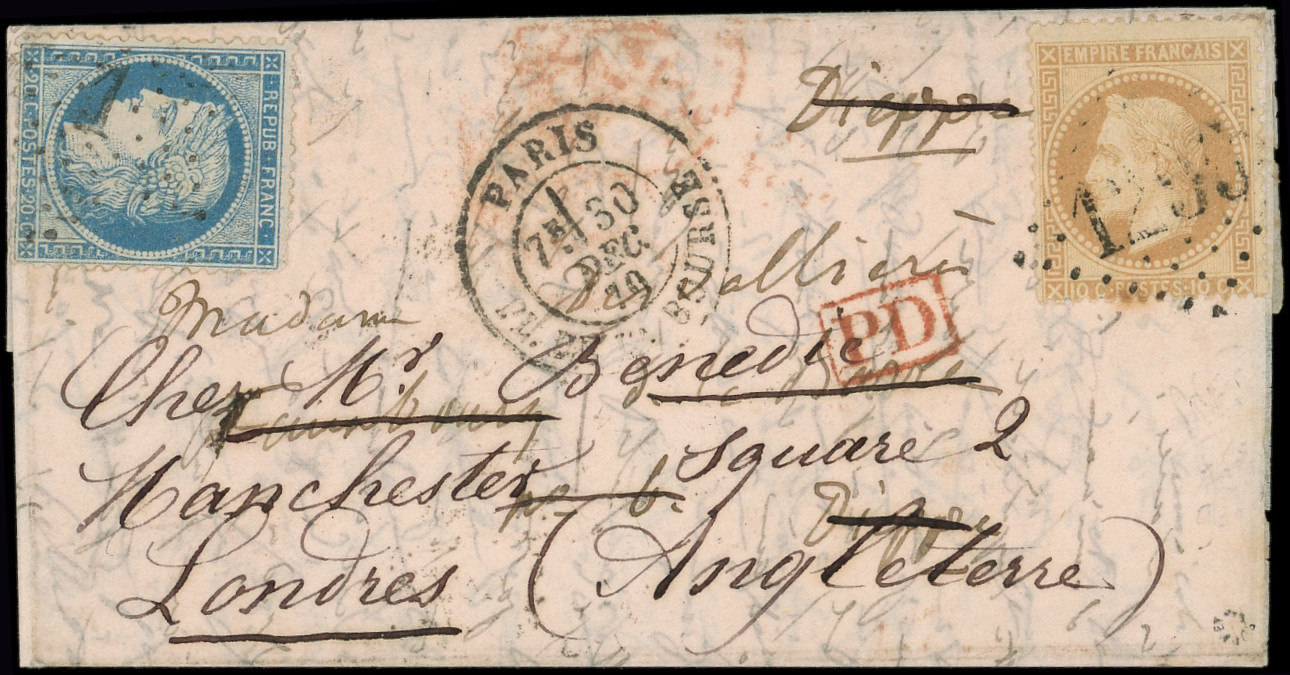 REPUB · FRANC
20 C · POSTES · 20 C
PARIS
7E 30
DEC.
BOURSE
Dieppe
EMPIRE FRANÇAIS
10 C · POSTES · 10 C
Madame
PD
Chez Mr Benedic
Faubourg
Manchester square 2
Dieppe
Londres (Angleterre)